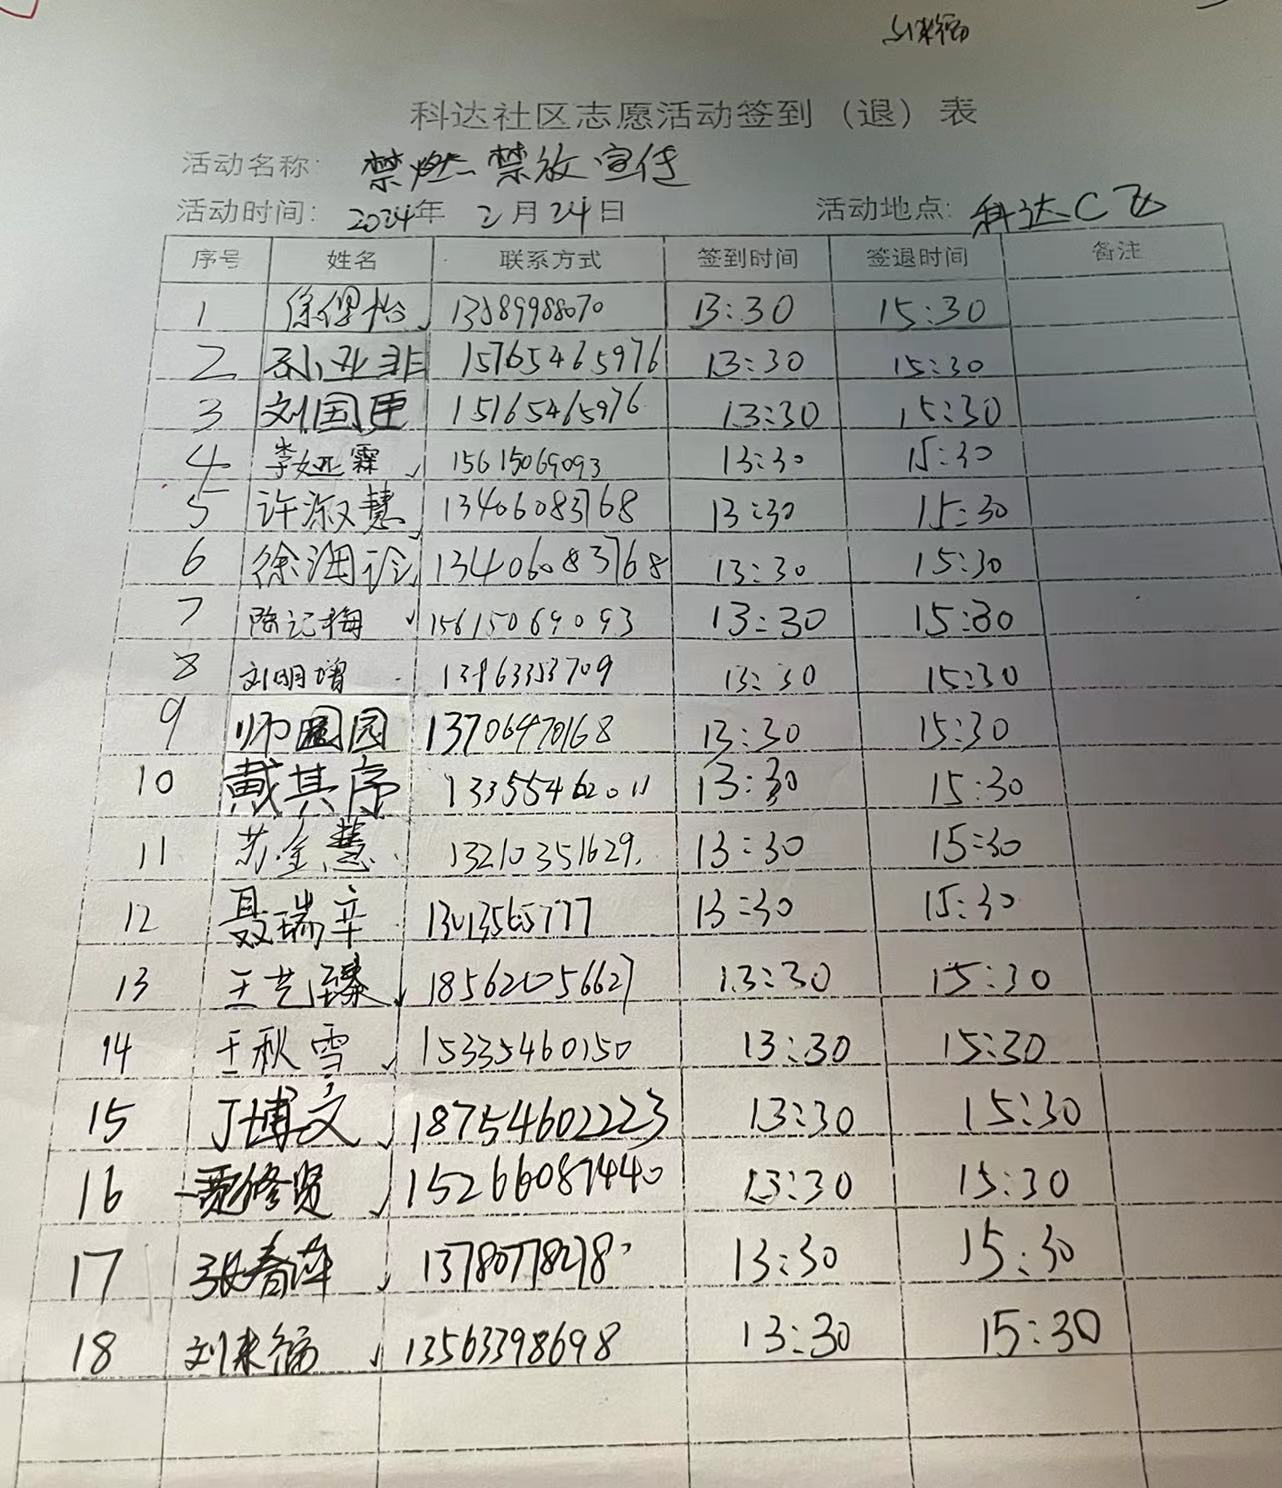 刘来福
科达社区志愿活动签到（退）表
活动名称： 禁燃禁放宣传
活动时间： 2024年 2月24日 活动地点： 科达C区
序号 姓名 联系方式 签到时间 签退时间 备注
1 徐保怡 13589988070 13:30 15:30
2 孙亚非 15765465976 13:30 15:30
3 刘国臣 15165465976 13:30 15:30
4 李娅霖 15615069093 13:30 15:30
5 许淑慧 13406083768 13:30 15:30
6 徐海诊 13406083768 13:30 15:30
7 陈记梅 15615069093 13:30 15:30
8 刘明增 13963353709 13:30 15:30
9 师圆园 13706470168 13:30 15:30
10 戴其序 13355462011 13:30 15:30
11 苏金慧 13210351629 13:30 15:30
12 聂瑞辛 13013565777 13:30 15:30
13 王艺臻 185621056627 13:30 15:30
14 王秋雪 15335460150 13:30 15:30
15 丁博文 18754602223 13:30 15:30
16 贾修贤 15266087440 13:30 15:30
17 张春萍 13780778278 13:30 15:30
18 刘来福 13563398698 13:30 15:30